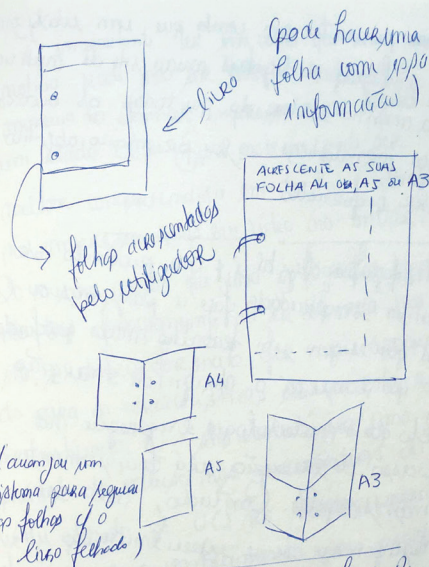 (pode haver uma
folha com
informação)
livro
ACRESCENTE AS SUAS
FOLHA A4 OU, A5 OU A3
folhas acrescentadas
pelo utilizador
A4
A5
A3
(arranjar um
sistema para segurar
as folhas c/ o
livro fechado)